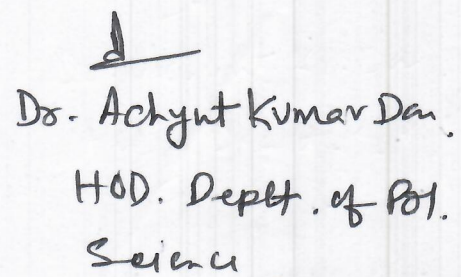 d
Dr. Achyut Kumar Das.
HOD. Deptt. of Pol.
Science